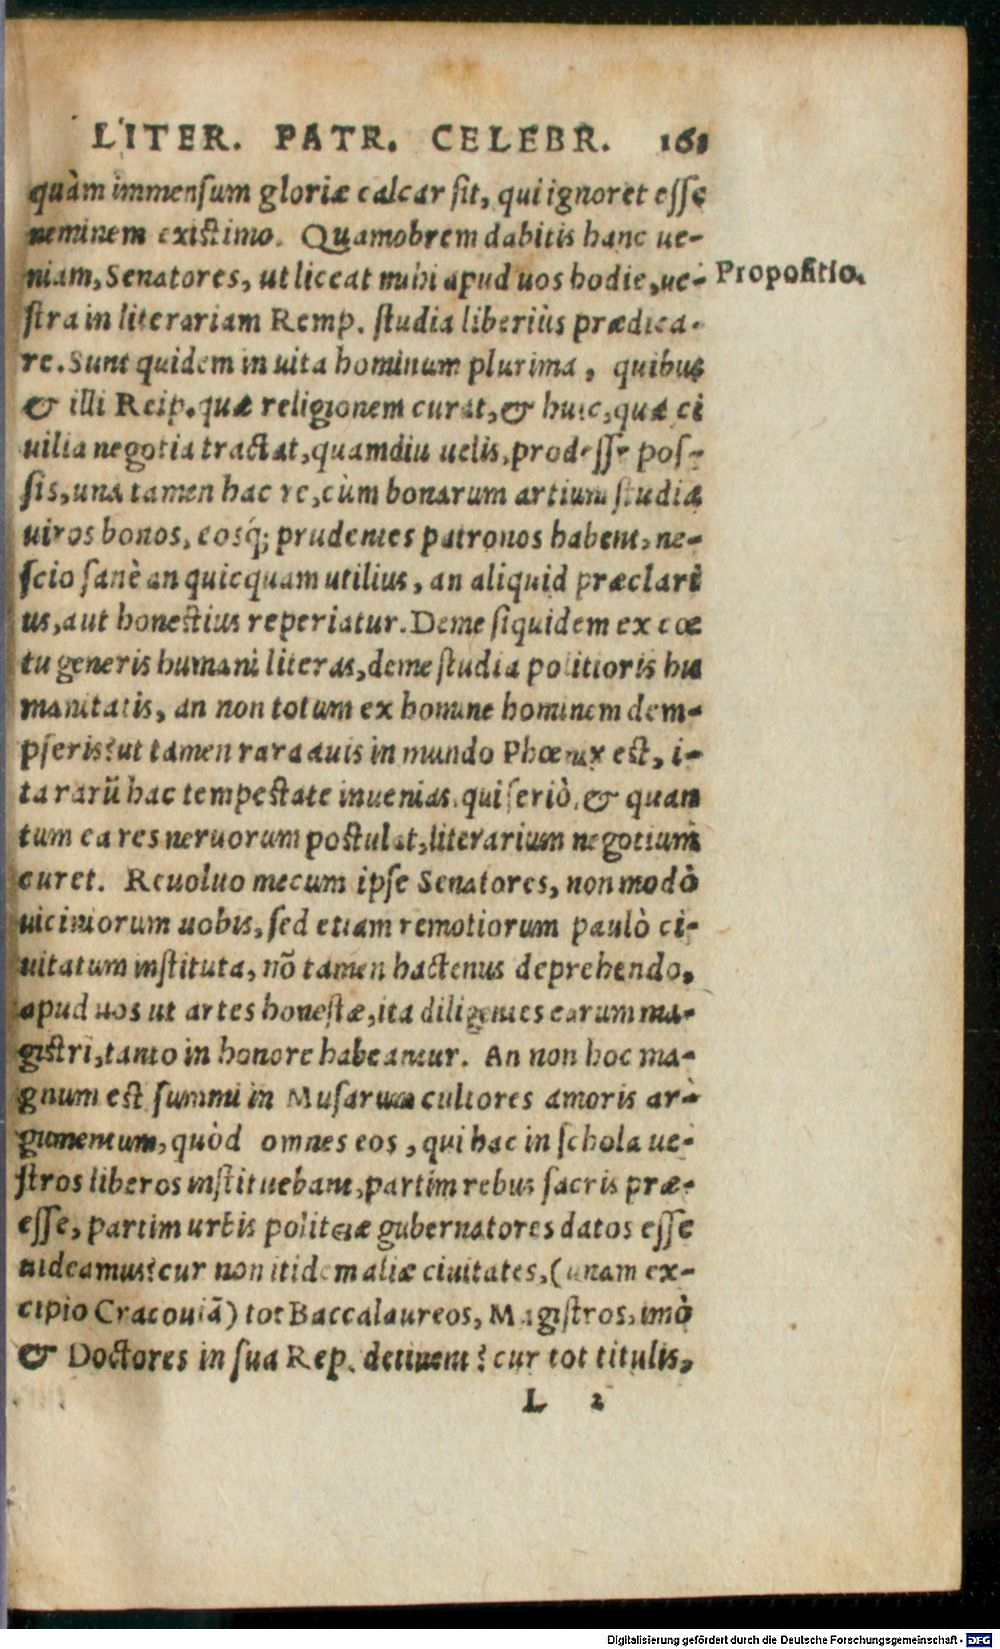 LITER. PATR. CELEBR. 161
quàm immensum gloriæ calcar sit, qui ignoret esse
neminem existimo. Quamobrem dabitis hanc ue-
niam, Senatores, ut liceat mihi apud uos hodie, ue-
Propositio.
stra in literariam Remp. studia liberiùs prædica-
re. Sunt quidem in uita hominum plurima, quibus
& illi Reip. quæ religionem curat, & huic, quæ ci
uilia negotia tractat, quamdiu uelis, prodesse pos-
sis, una tamen hac re, cùm bonarum artium studia
uiros bonos, eosq́; prudentes patronos habent, ne-
scio sanè an quicquam utilius, an aliquid præclari
us, aut honestius reperiatur. Deme siquidem ex cœ
tu generis humani literas, deme studia politioris hu
manitatis, an non totum ex homine hominem dem-
pseris? ut tamen rara auis in mundo Phœnix est, i-
ta rarũ hac tempestate inuenias, qui seriò, & quan
tum ea res neruorum postulat, literarium negotium
curet. Reuoluo mecum ipse Senatores, non modò
uiciniorum uobis, sed etiam remotiorum paulò ci-
uitatum instituta, nõ tamen hactenus deprehendo,
apud uos ut artes honestæ, ita diligentes earum ma-
gistri, tanto in honore habeantur. An non hoc ma-
gnum est summi in Musarum cultores amoris ar-
gumentum, quòd omnes eos, qui hac in schola ue-
stros liberos instituebant, partim rebus sacris præ-
esse, partim urbis politeiæ gubernatores datos esse
uideamus? cur non itidem aliæ ciuitates, (unam ex-
cipio Cracouiã) tot Baccalaureos, Magistros, imò
& Doctores in sua Rep. detinent? cur tot titulis,
L 2
Digitalisierung gefördert durch die Deutsche Forschungsgemeinschaft - DFG